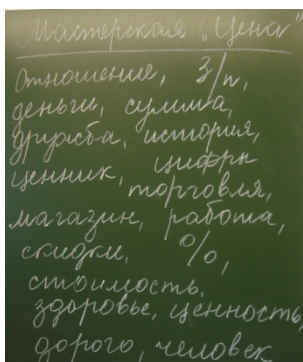 Мастерская „Цена"
отношение, з/п,
деньги, сумма,
дружба, история,
ценник, цифры
торговля,
магазин, работа,
скидки, %,
стоимость,
здоровье, ценность
дорого, человек